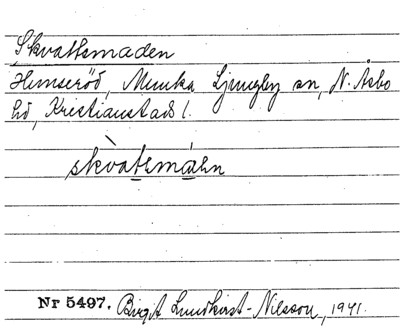 Skvattsmaden
Hemseröd, Munka Ljungby sn, N. Åsbo
hd, Kristianstads l.
skvàtsmáɛn
Nr 5497. Birgit Lundkvist-Nilsson, 1941.